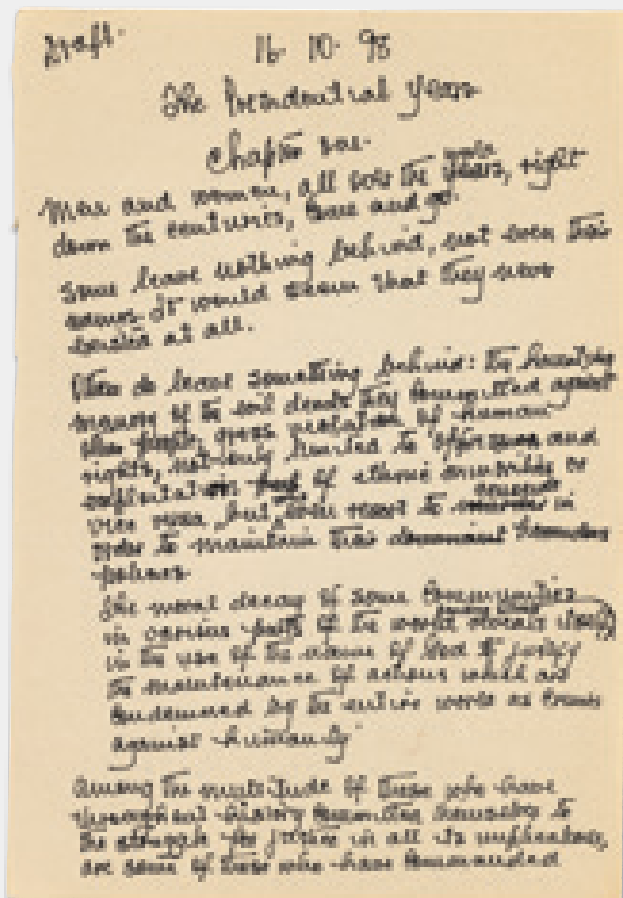 Draft.
16. 10. 98
The Presidential Years
Chapter one.
Men and women, all over the world years, right
down the centuries, come and go.
Some leave nothing behind, not even their
names. It would seem that they never
existed at all.
Others do leave something behind: the haunting
memory of the evil deeds they committed against
other people, gross violation of human
rights, not only limited to oppression and
exploitation of ethnic minorities or
vice versa, but even resort to in
order to maintain their
policies.
The moral decay of some communities
in various parts of the world reveals itself
in the use of the name of God to justify
the maintenance of actions which are
condemned by the entire world as crimes
against humanity
Among the multitude of those who have
throughout history committed themselves to
the struggle for justice in all its implications,
are some of those who have commanded